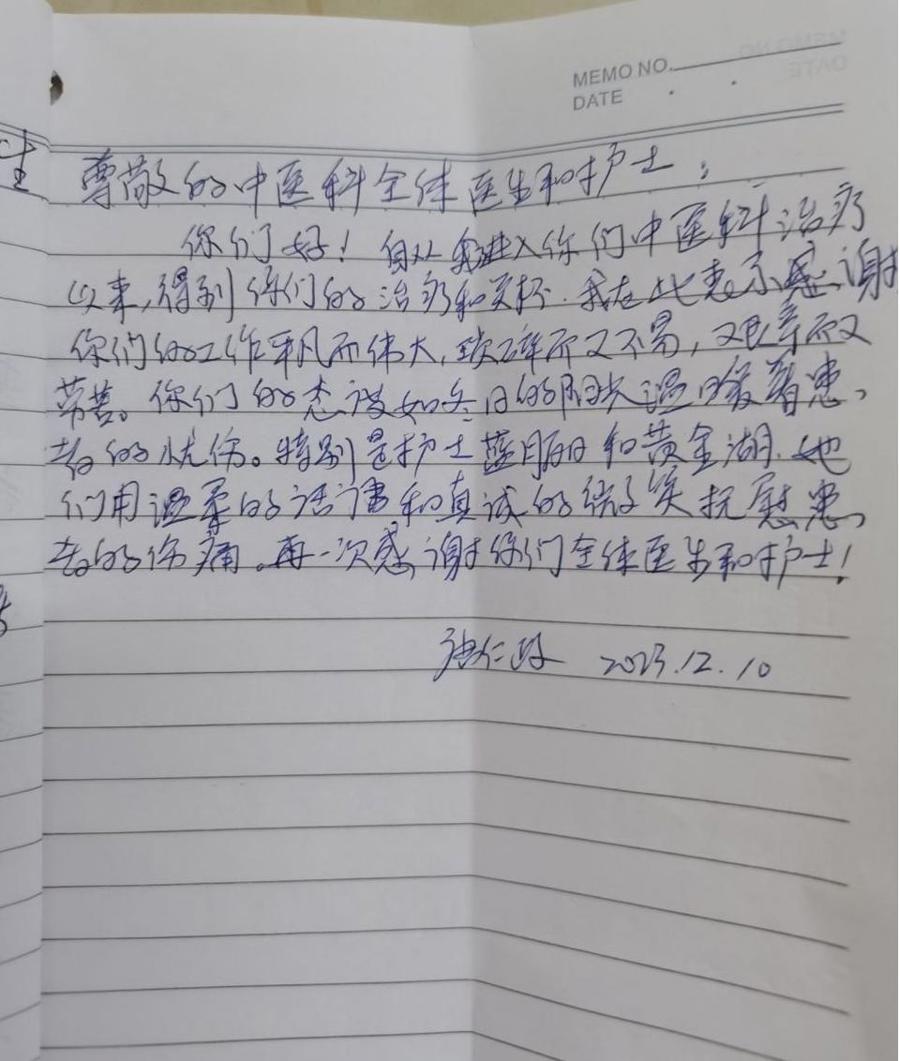 MEMO NO.
DATE
尊敬的中医科全体医生和护士：
你们好！自从我进入你们中医科治疗
以来，得到你们的治疗和关怀.我在此表示感谢
你们的工作平凡而伟大，琐碎而又不易，艰辛而又
劳苦。你们的态度如冬日的阳光温暖着患
者的忧伤。特别是护士蓝丽丽和黄金湖.她
们用温柔的话语和真诚的微笑抚慰患
者的伤痛.再一次感谢你们全体医生和护士！
2023.12.10